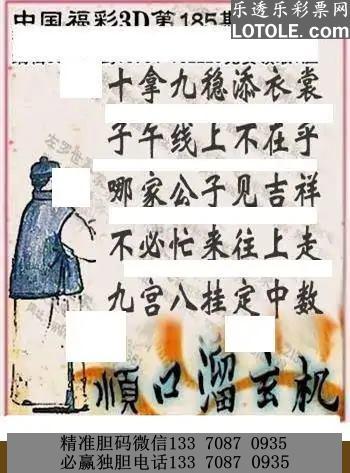 中国福彩3D第185期
乐透乐彩票网
LOTOLE.COM
十拿九稳添衣裳
子午线上不在乎
哪家公子见吉祥
不必忙来往上走
九宫八挂定中数
順口溜玄机
精准胆码微信133 7087 0935
必赢独胆电话133 7087 0935